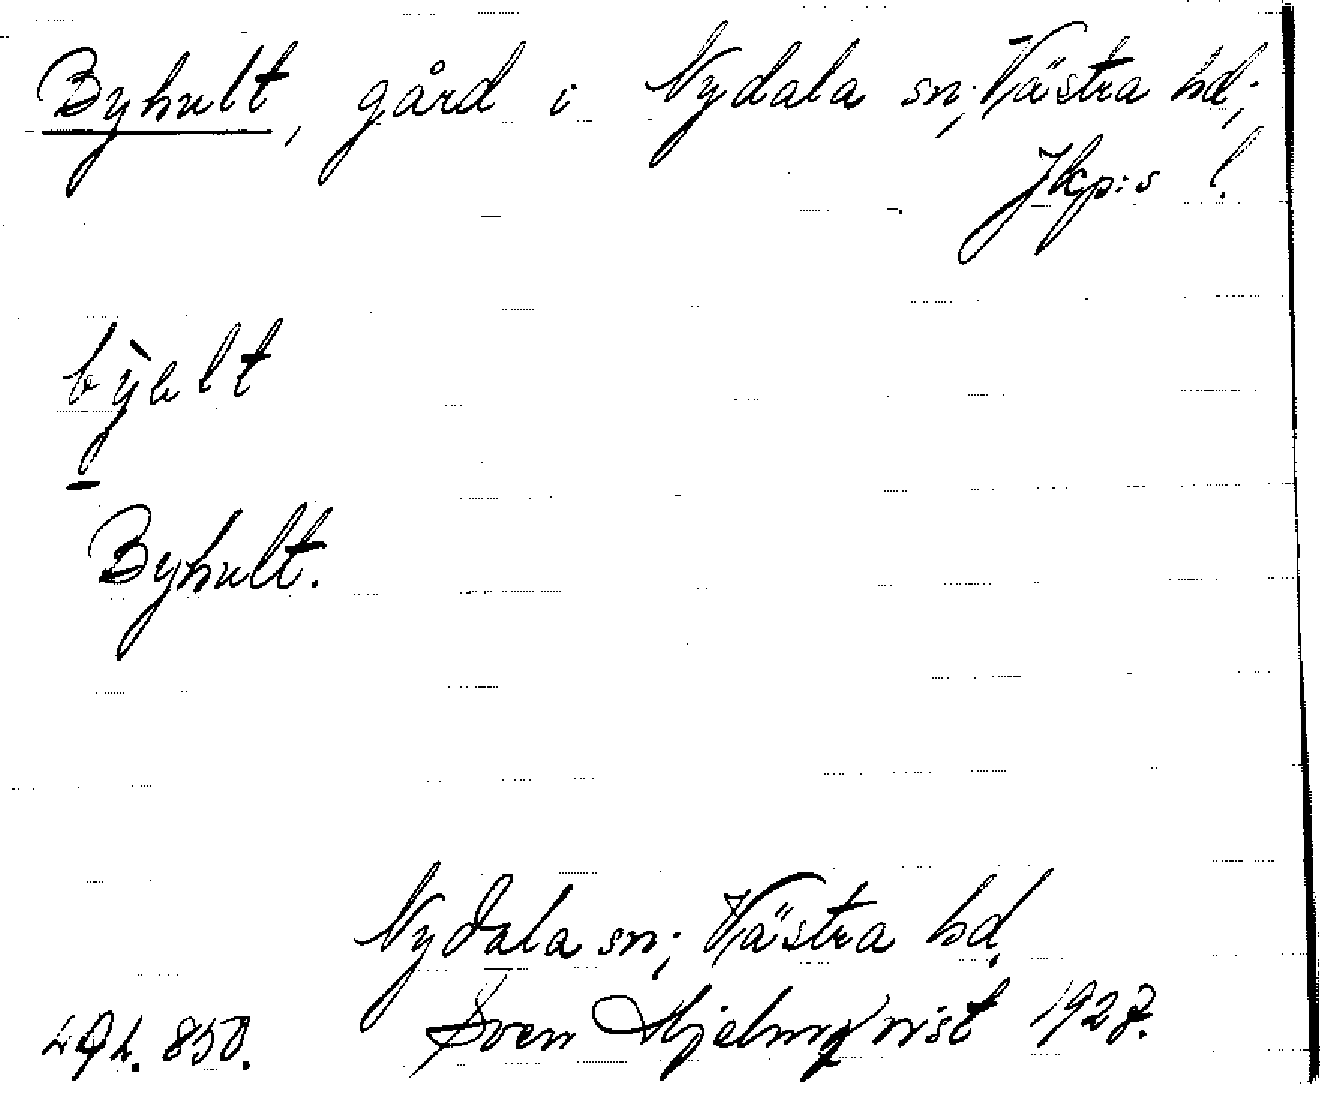 Byhult, gård i Nydala sn; Västra hd;
Jkp:s l.
bỳelt
Byhult.
Nydala sn; Västra hd.
850. Sven Hjelmqvist 1927.